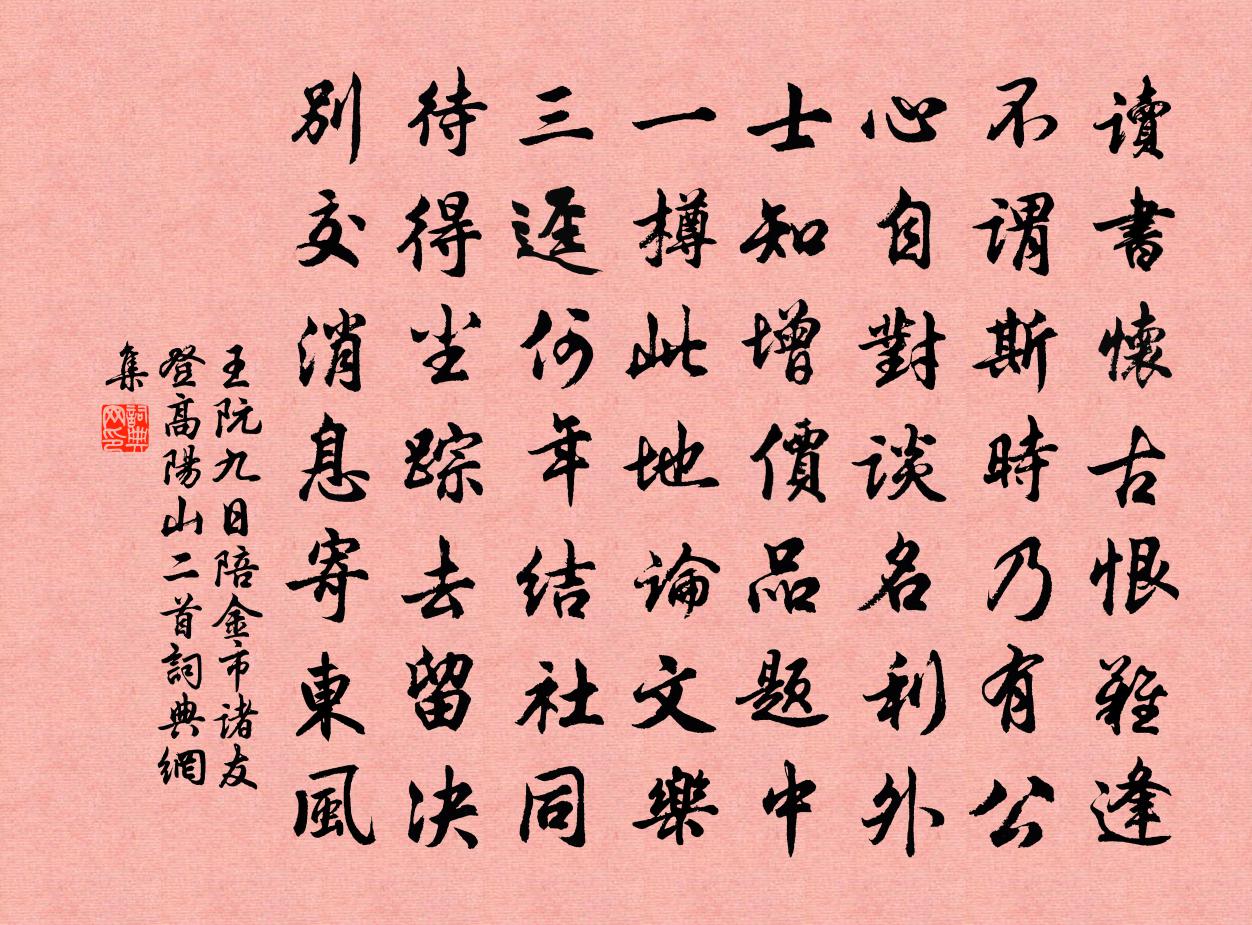 讀書懷古恨難逢
不謂斯時乃有公
心自對談名利外
士知增價品題中
一樽此地論文樂
三逕何年結社同
待得尘踪去留决
别交消息寄東風
王阮九日陪金市诸友
登高陽山二首詞典網
集
詞典网印